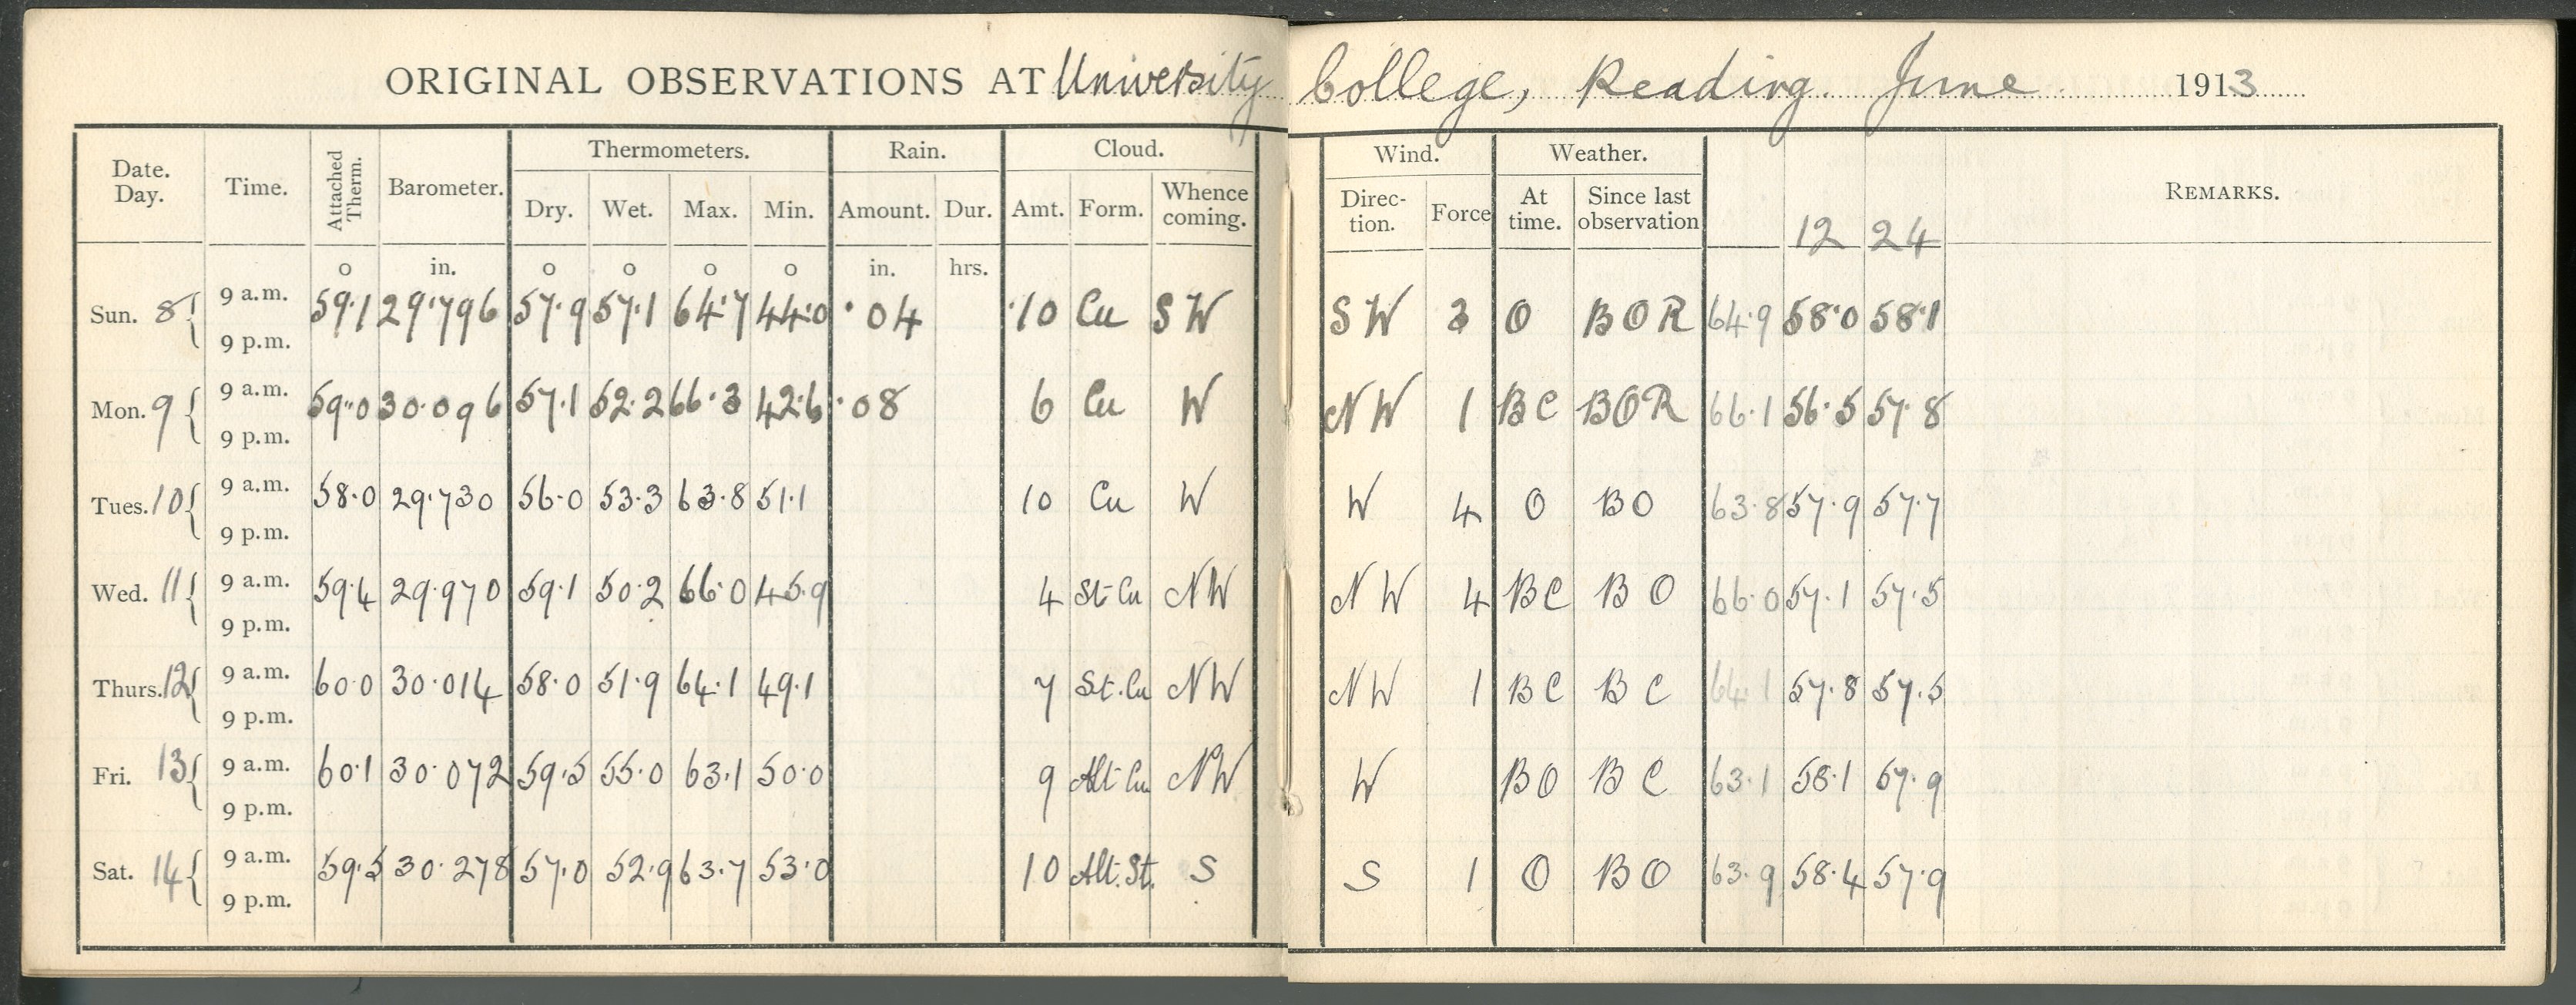 ORIGINAL OBSERVATIONS AT University College, Reading. June 1913
Thermometers. Rain. Cloud. Wind. Weather.
Date. Day. Time. Attached Therm. Barometer. Dry. Wet. Max. Min. Amount. Dur. Amt. Form. Whence coming. Direc- tion. Force At time. Since last observation 12 24 REMARKS.
o in. o o o o in. hrs.
Sun. 8 { 9 a.m. 59.1 29.796 57.9 57.1 64.7 44.0 .04 10 Cu SW SW 3 O BOR 64.9 58.0 58.1
9 p.m.
Mon. 9 { 9 a.m. 59.0 30.096 57.1 52.2 66.3 42.6 .08 6 Cu W NW 1 BC BOR 66.1 56.5 57.8
9 p.m.
Tues. 10 { 9 a.m. 58.0 29.730 56.0 53.3 63.8 51.1 10 Cu W W 4 O BO 63.8 57.9 57.7
9 p.m.
Wed. 11 { 9 a.m. 59.4 29.970 59.1 50.2 66.0 45.9 4 St Cu NW NW 4 BC BO 66.0 57.1 57.5
9 p.m.
Thurs. 12 { 9 a.m. 60.0 30.014 58.0 51.9 64.1 49.1 7 St.Cu NW NW 1 BC BC 64.1 57.8 57.5
9 p.m.
Fri. 13 { 9 a.m. 60.1 30.072 59.5 55.0 63.1 50.0 9 Alt Cu NW W BO BC 63.1 58.1 57.9
9 p.m.
Sat. 14 { 9 a.m. 59.5 30.278 57.0 52.9 63.7 53.0 10 Alt.St. S S 1 O BO 63.9 58.4 57.9
9 p.m.